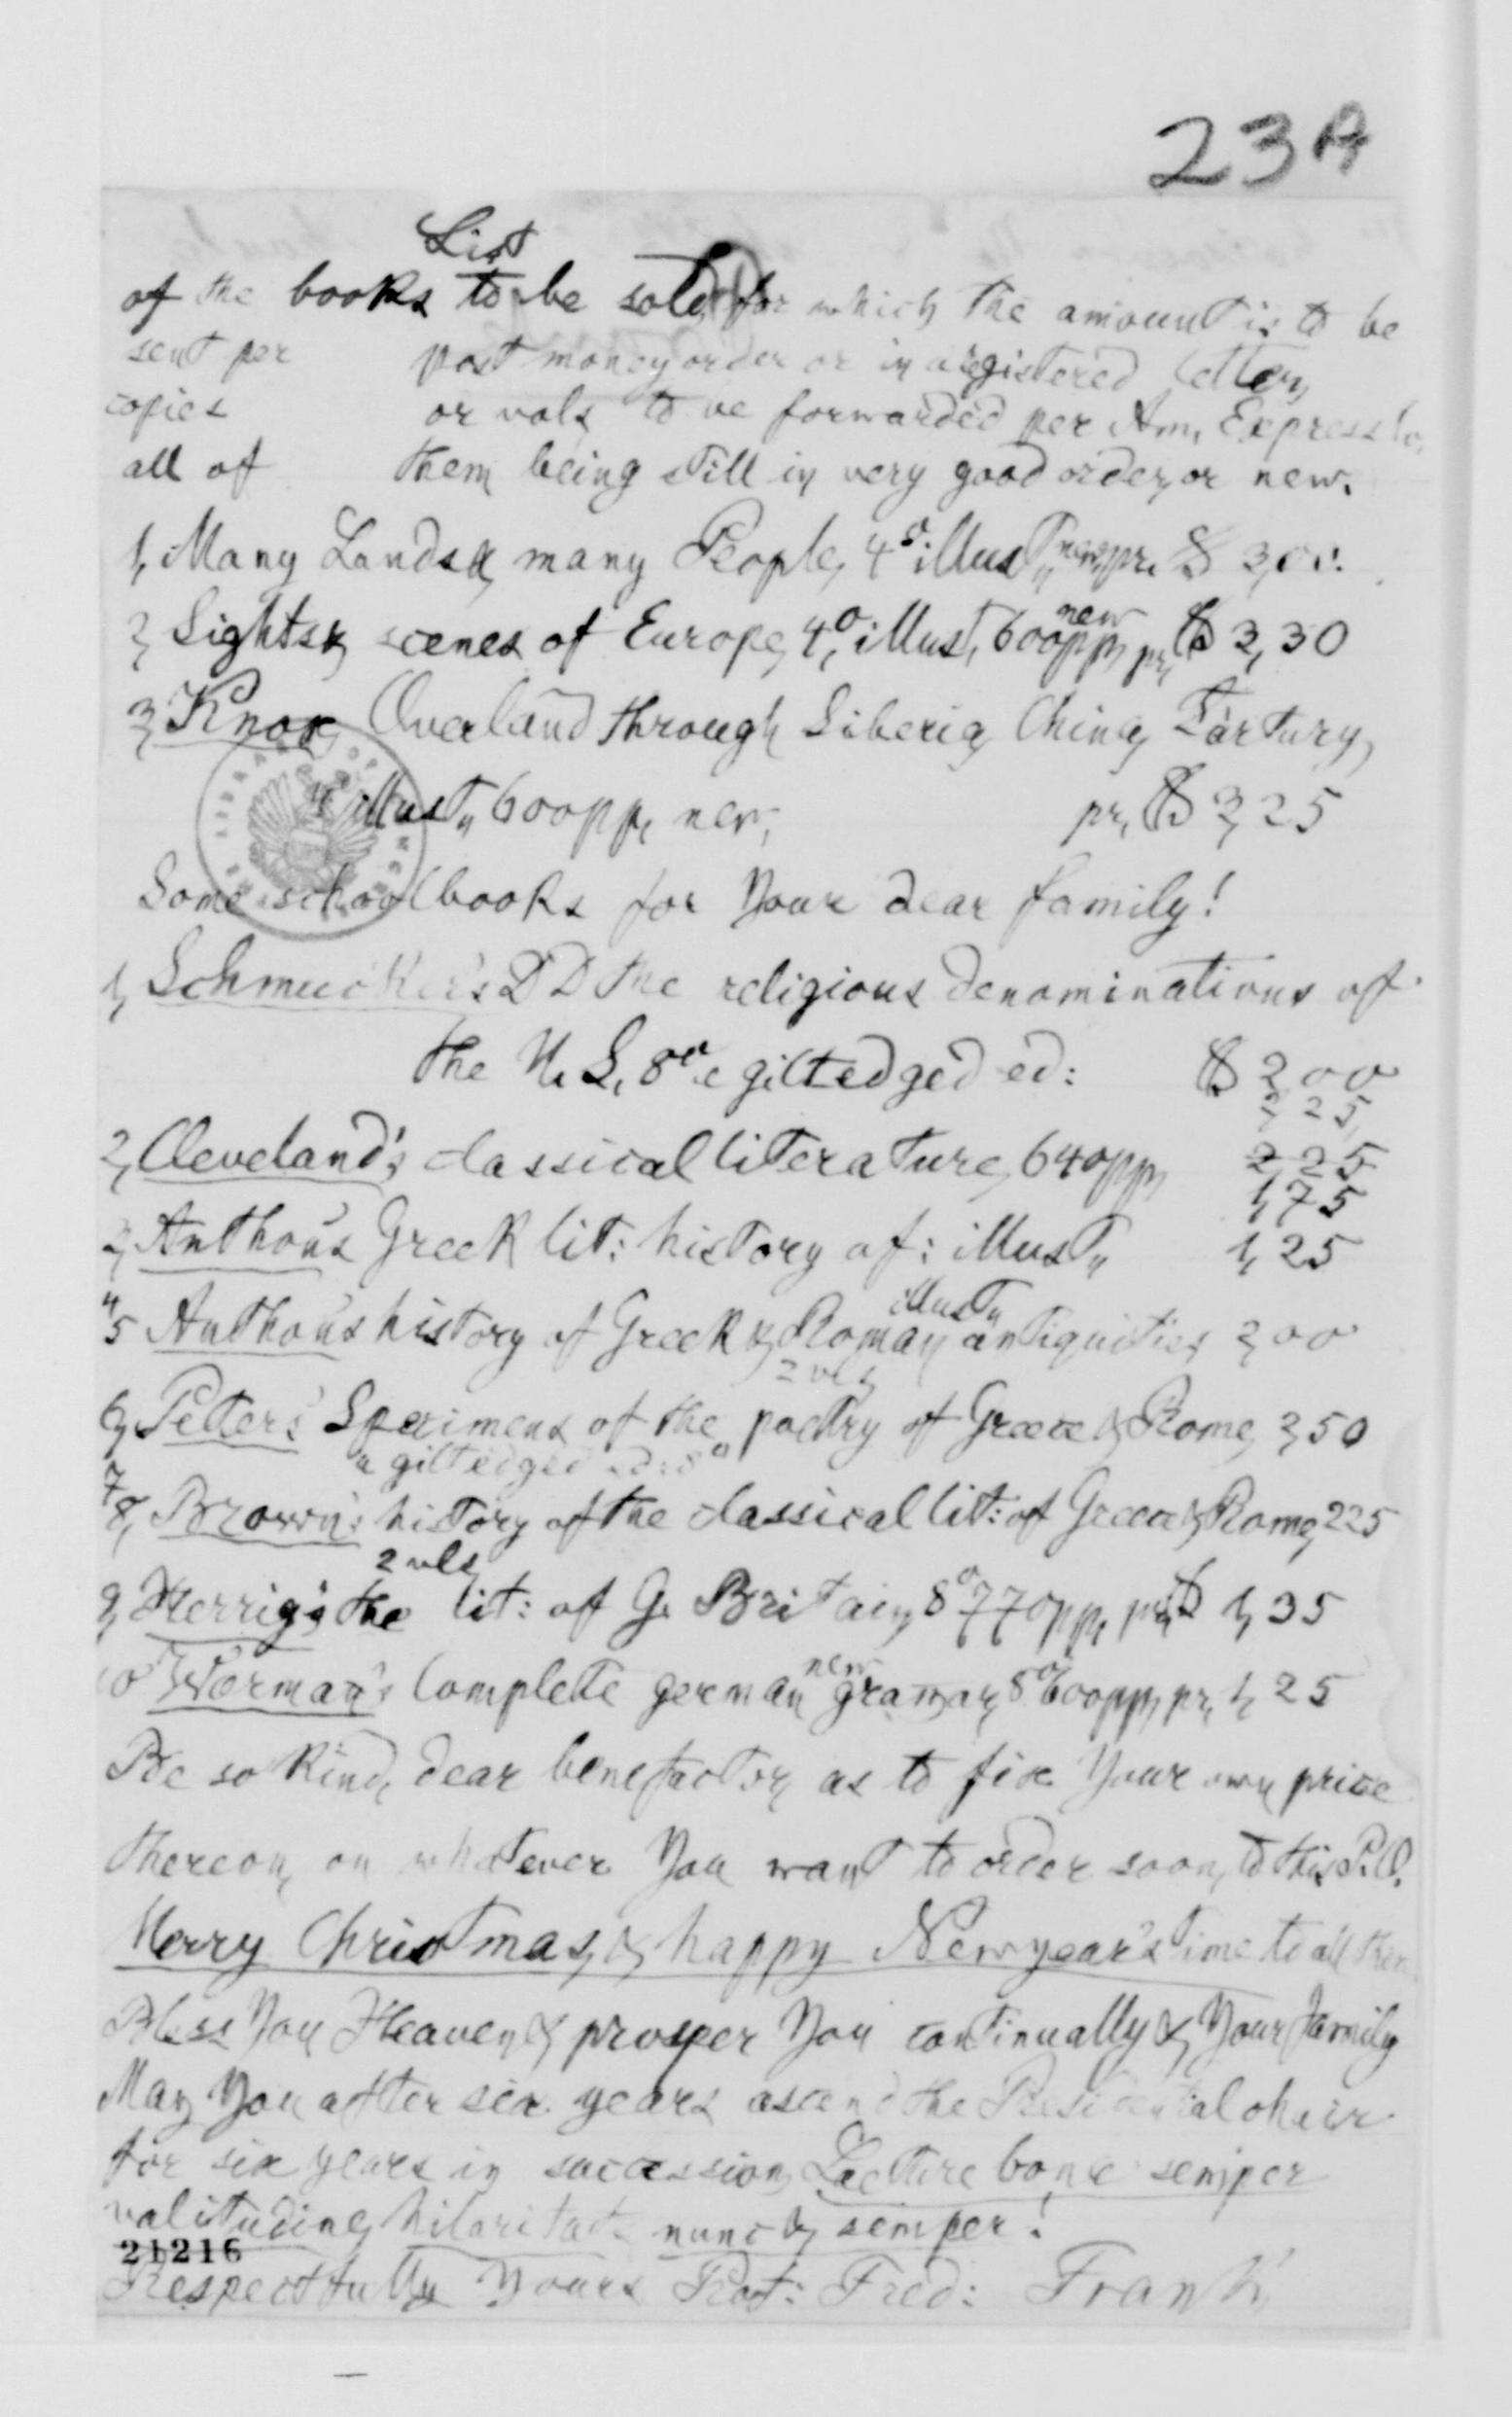 23A
List
of the books to be sold, for which the amount is to be
sent per post money order or in a registered letter,
copies or vols, to be forwarded per Am. Express Co,
all of them being still in very good order, or new.
1, Many Lands & many People, 4o illust,, new, pr. $ 3,00.
new
2, Sights & scenes of Europe, 4o, illust, 600pp, pr, $ 3,30
3, Knox Overland through Siberia, China, Tartary,
illust,, 600pp, new, pr, $ 3,25
Some schoolbooks for Your dear family!
1, Schmucker's D D the religious denominations of
the U. S, 8o giltedged ed: $ 2,00
2,25,
2, Cleveland's classical literature, 640pp, 2,25
1,75
3, Anthon's Greek lit: history of: illust,, 1,25
illust,,
4 5 Anthon's history of Greek & Roman antiquities, 2,00
2 vls,
6, Peters' Specimens of the poetry of Greece & Rome, 3,50
a giltedged ed: 8o
7 8, Brown's history of the classical lit: of Greece & Rome, 225
2 vls,
9, Herrig's the lit: of G. Britain, 8o 770pp, pr, $ 1,35
new
10 Worman's Complete german gramar, 8o 600pp, pr, 1,25
Be so kind, dear benefactor, as to fix Your own price
thereon, on whatever You want to order soon, to this P.O.
Merry Christmas, & happy Newyear's time to all there
Bless You Heaven & prosper You continually & Your family
May You after six years ascend the Presidential chair
for six years in succession, Laetare bona semper
valitudine, hilaritate nunc & semper!
21216
Respectfully Yours Prof: Fred: Frank